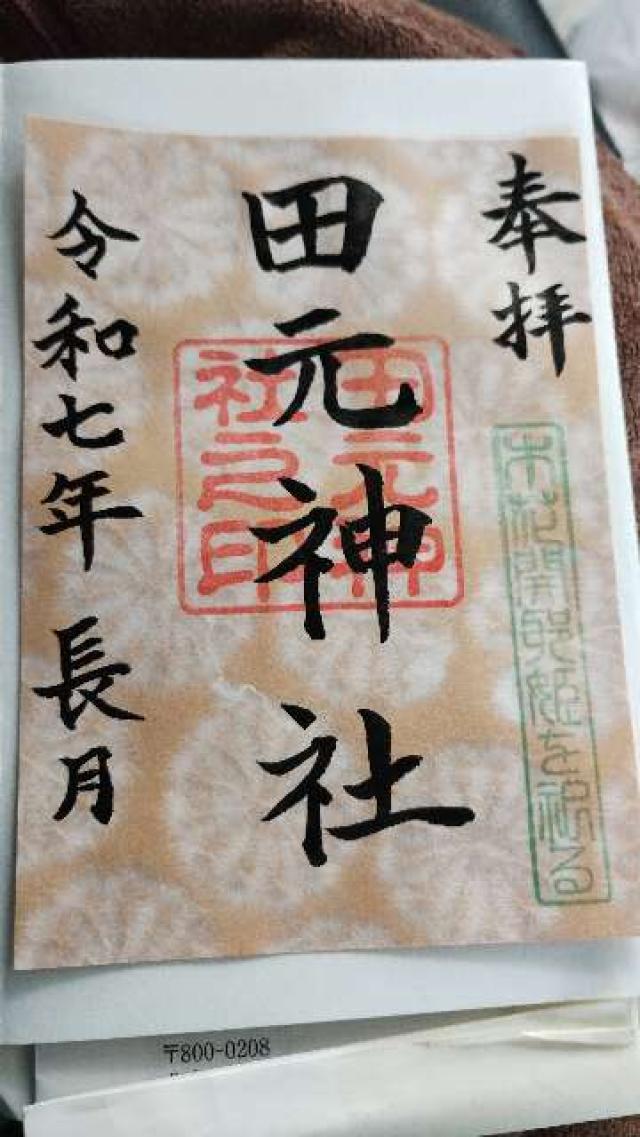 奉拝
木花開耶姫を祀る
田元神社
田元神
社之印
令和七年 長月
〒800-0208